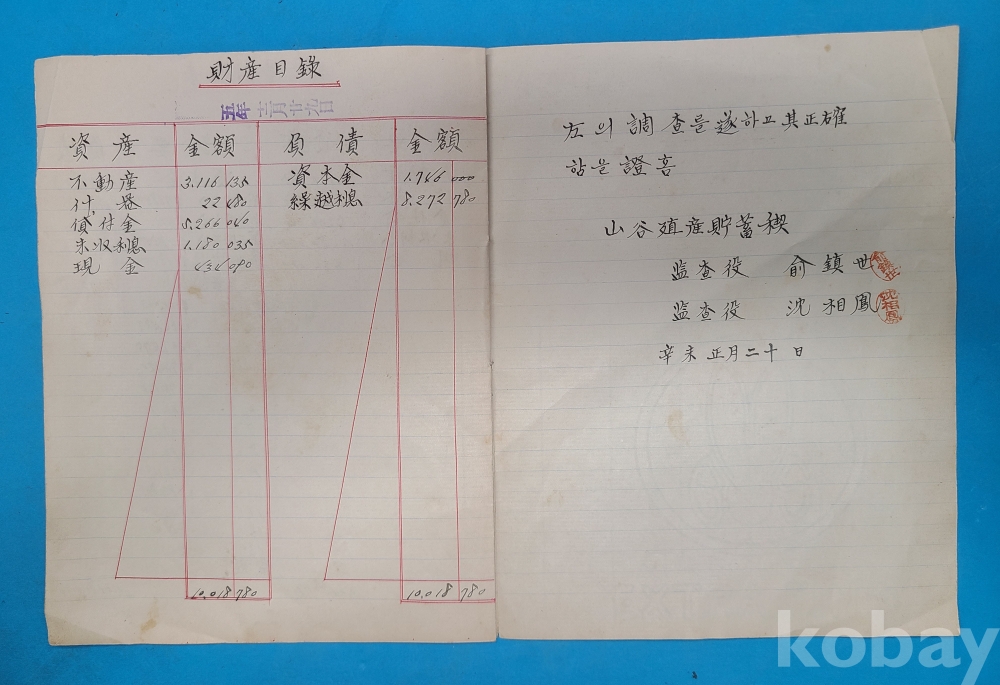 財産目錄
五年 十二月 廿九日
資産 金額 負債 金額
不動産 3.116 135 資本金 1.746 000
什器 22 480 繰越利息 8.272 780
貸付金 5.266 040
未收利息 1.180 035
現金 434 090
10,018 780 10,018 780
左의 調査를遂하고其正確
함을證홈
山谷殖産貯蓄稧
监查役 俞鎮世
监查役 沈相鳳
沈相鳳
辛未 正月二十日
kobay